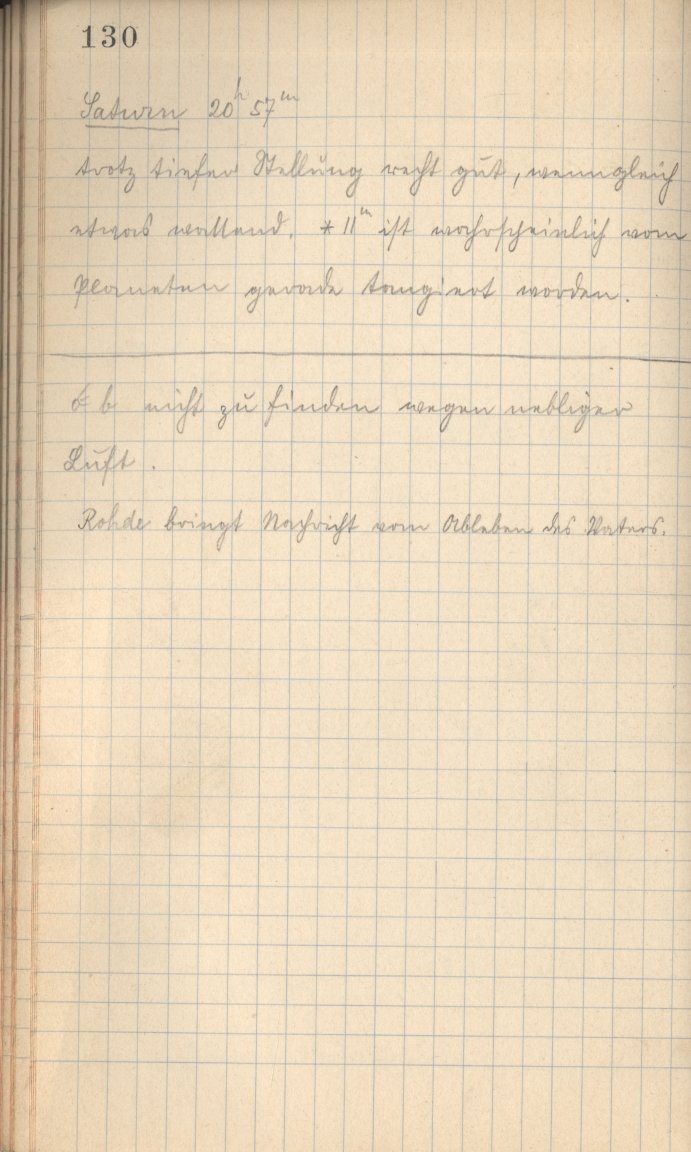 130
Saturn 20h 57m
trotz tiefer Stellung recht gut, wenngleich
etwas wallend. * 11m ist wahrscheinlich vom
Planeten gerade tangiert worden.
b nicht zu finden wegen nebliger
Luft.
Rohde bringt Nachricht vom Ableben des Vaters.